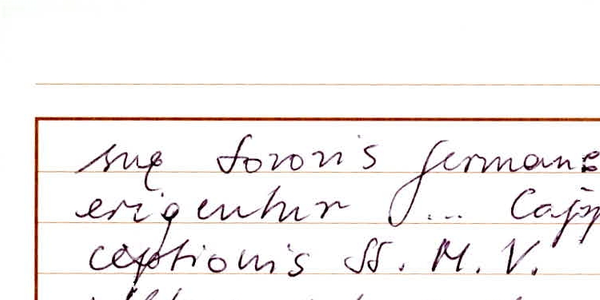 suę sororis german
erigentur ...
ceptionis SS. M. V.